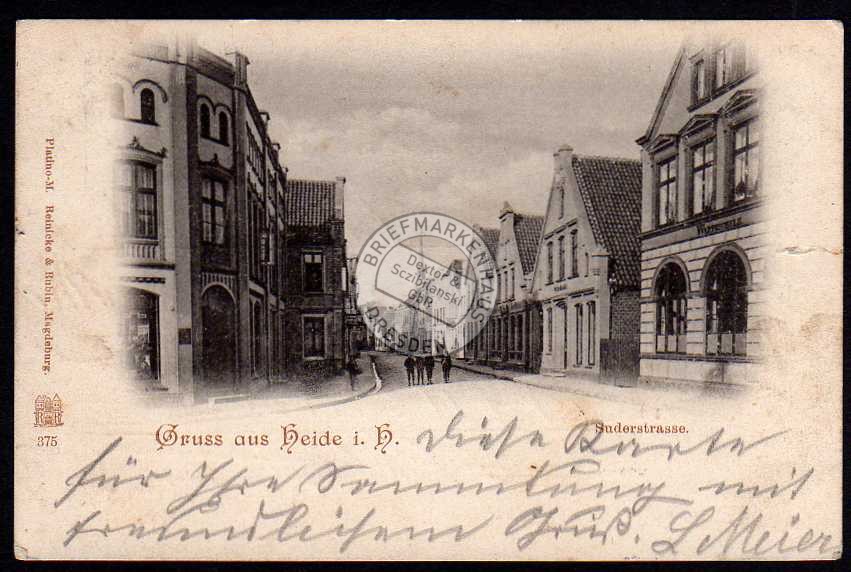 Platino-M. Reinicke & Rubin, Magdeburg.
375
BRIEFMARKENHAUS
Dexter &
Sczibilanski
GbR
DRESDEN
Gruss aus Heide i. H.
Suderstrasse.
diese Karte
für Ihre Sammlung mit
freundlichem Gruß. L Meier